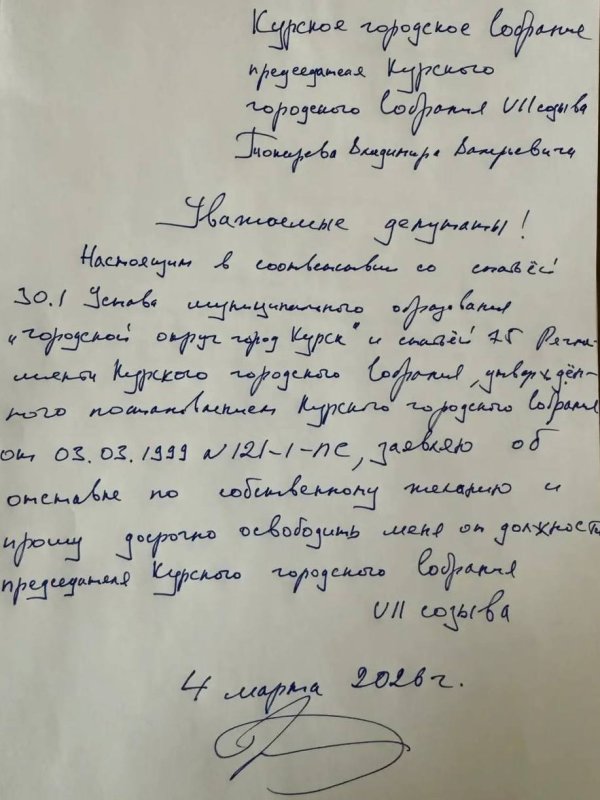 Курское городское Собрание
председателя Курского
городского Собрания VII созыва
Токарева Владимира Валерьевича
Уважаемые депутаты!
Настоящим в соответствии со статьёй
30.1 Устава муниципального образования
"Городской округ город Курск" и статьёй 75 Регла-
мента Курского городского Собрания, утверждён-
ного постановлением Курского городского Собрания
от 03.03.1999 №121-1-ПС, заявляю об
отставке по собственному желанию и
прошу досрочно освободить меня от должности
председателя Курского городского Собрания
VII созыва
4 марта 2026 г.